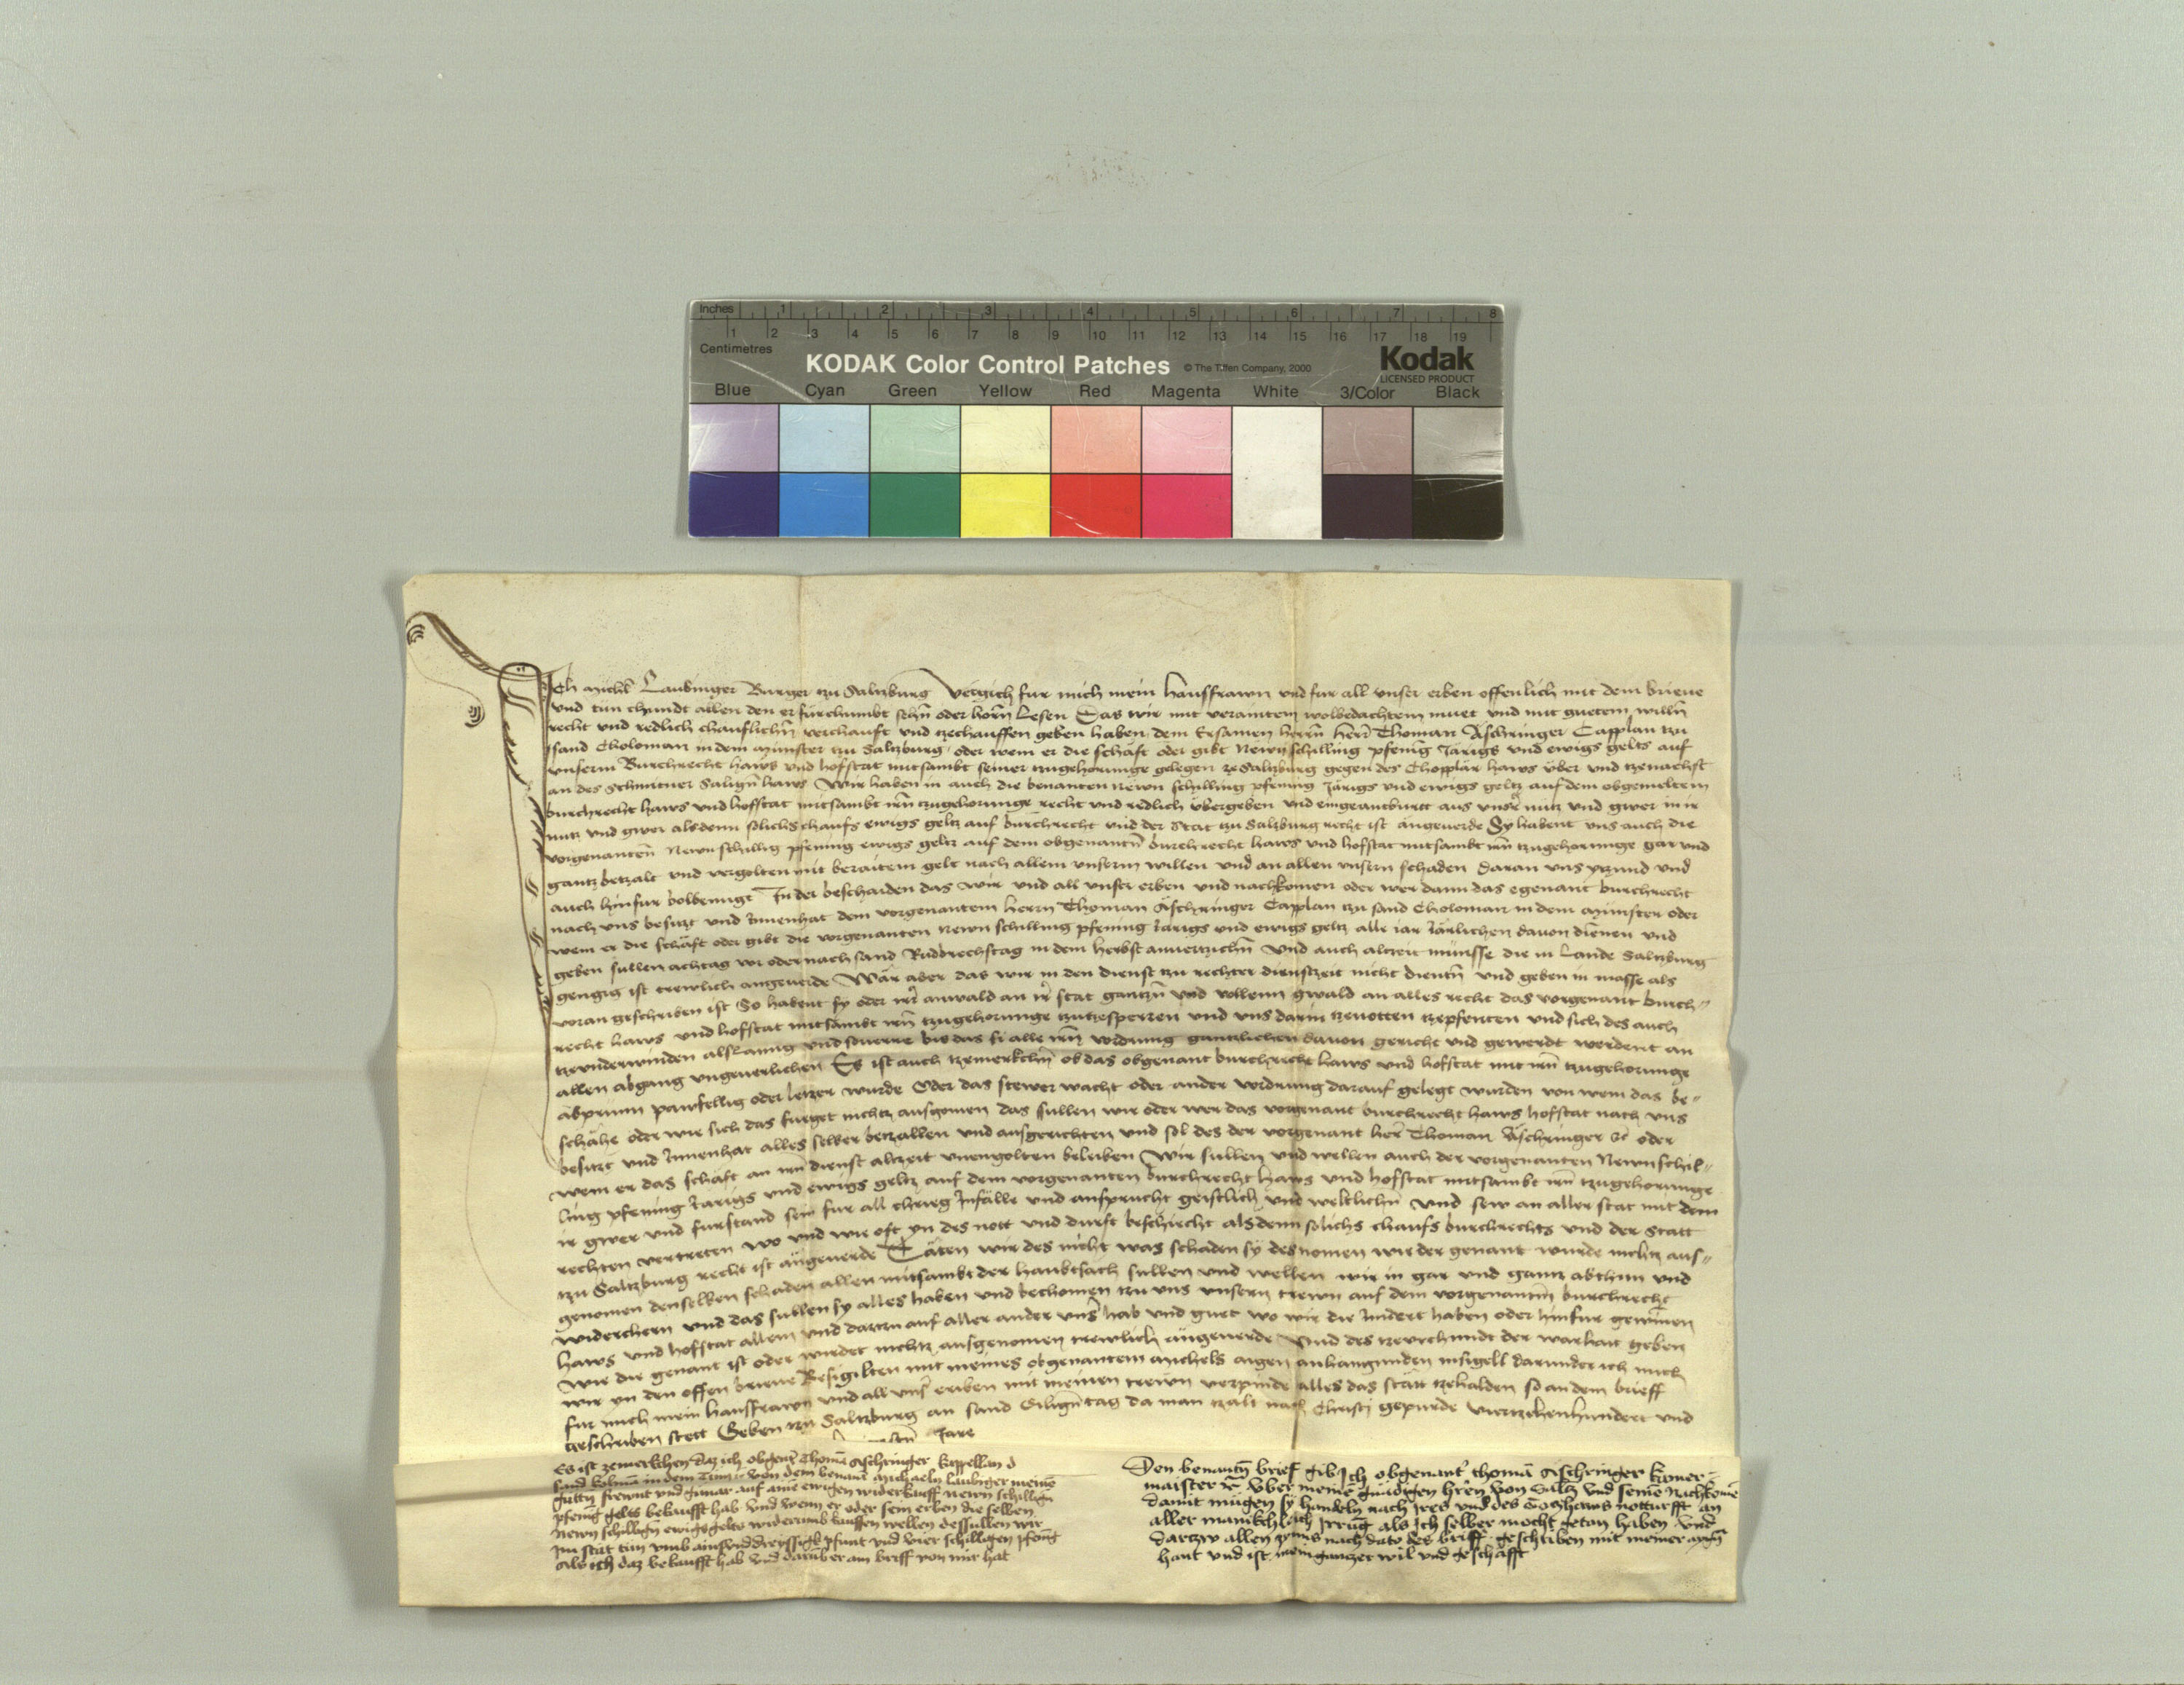 Inches 1 2 3 4 5 6 7 8
1 2 3 4 5 6 7 8 9 10 11 12 13 14 15 16 17 18 19
Centimetres
KODAK Color Control Patches © The Tiffen Company, 2000 Kodak
LICENSED PRODUCT
Blue Cyan Green Yellow Red Magenta White 3/Color Black
Ich Michel Laubinger Burger tzu Saltzburg Vergich fur mich mein hausfrawn und fur all unser erben offenlich mit dem brieue
und tun chundt allen den er furchumbt sehn oder horn lesen Das wir mit veraintem wolbedachtem muet und mit guetem willn
recht und redlich chauflichn verchauft und tzechauffen geben haben dem Ersamen herrn hern Thoman Äschringer Capplan tzu
sand Choloman in dem Münster tzu Saltzburg oder wem er die schäft oder gibt Newn schilling pfening Järigs und ewigs gelts auf
unserm Burchrecht haws und hofstat mitsambt seiner tzugehorunge gelegen ze Saltzburg gegen des Chopplär haws über und tzenachst
an des Schmitner Sälign haws Wir haben in auch die benanten Newn schilling pfening Järigs und ewigs geltz auf dem obgemeltem
burchrecht haws und hofstat mitsambt irn tzugehorunge recht und redlich übergeben und eingeantburtt aus unser nutz und gwer in ir
nutz und gwer alsdenn solichs chaufs ewigs geltz auf burchrecht und der Stat tzu Saltzburg recht ist angeuerde Sy habent uns auch die
vorgenanten Newn schillig pfening ewigs geltz auf dem obgenantn burchrecht haws und hofstat mitsambt irn tzugehorunge gar und
gantz betzalt und vergolten mit beraitem gelt nach allem unserm willen und an allen unsern schaden Daran uns yzund und
auch hinfur bolbenugt In der beschaiden das wir und all unser erben und nachkomen oder wer dann das egenant burchrecht
nach uns besitzt und Innenhat dem vorgenantem herrn Thoman Äschringer Capplan tzu sand Choloman in dem Münster oder
wem er die schäft oder gibt die vorgenanten Newn schilling pfening Järigs und ewigs geltz alle iar Järlichen dauon dienen und
geben sullen achtag vor oder nach sand Rudbrechstag in dem herbst anuertzichn und auch altzeit münsse die in Lande Saltzburg
gengig ist trewlich angeuerde Wär aber das wir in den dienst tzu rechter dienstzeit nicht dientn und geben in masse als
voran geschriben ist So habent sy oder irr anwald an ir stat gantzn und vollenn gwald an alles recht das vorgenant burch-
recht haws und hofstat mitsambt irn tzugehorunge tzutzesperren und uns darin tzenotten tzepfenten und sich des auch
tzeunderwinden alslanng und souerre bis das si alle irn vodrung gantzlichen dauon gericht und gewerdt werdent an
allen abgang ungeuerlichen Es ist auch tzemerkchn ob das obgenant burchrecht haws und hofstat mit irn tzugehorunge
abprunn pawfellig oder letzer wurde Oder das stewer wacht oder ander vodrung darauf gelegt wurden von wem das be-
schähe oder wie sich das furget nichtz ausgnomen das sullen wir oder wer das vorgenant burchrecht haws hofstat nach uns
besitzt und Innenhat alles selber betzallen und ausgerichten und sol des der vorgenant her Thoman Äschringer etc oder
wem er das schäft an irn dienst altzeit unengolten beleiben Wir sullen und wellen auch der vorgenanten Newn schil-
ling pfening Järigs und ewigs geltz auf dem vorgenanten burchrecht haws und hofstat mitsambt irn tzugehorunge
ir gwer und furstand sein fur all chrieg Infälle und ansprucht geistlich und weltlichn und sew an aller stat mit dem
rechten vertreten wo und wie oft yn des nott und durft beschiecht alsdenn solichs chaufs burchrechts und der Statt
tzu Saltzburg recht ist angeuerde Täten wir des nicht was schaden sy des nomen wie der genant wurde nichtz aus-
genomen denselben schaden allen mitsambt der haubtsach sullen und wellen wir in gar und gantz abthun und
widerchern und das sullen sy alles haben und bechomen tzu uns unsern trewn auf dem vorgenantm burchrecht
haws und hofstat allem und dartzu auf aller ander unser hab und guet wo wir die Indert haben oder hinfur gewinen
wie die genant ist oder wirdet nichtz ausgenomen trewlich angeuerde Und des tzeurchundt der warhait geben
wir yn den offen brieue Besigilten mit meines obgenantem Michels aigen anhangunden insigell darunder ich mich
fur mich mein hausfrawn und all unser erben mit meinen trewn verpinde alles das stätt tzehalden so an dem brieff
geschriben stett Geben tzu Saltzburg an sand Giligen tag da man tzalt nach Christi gepurde Viertzehenhundert und
Jare
Es ist zemerkchen daz ich obgenant Thoman Aschringer kappellan
sand kolman in dem Tum von dem benant Michaeln laubinger meine
gutn frewnt und gunar auf aine ewigen widerkauff newn schillign
pfenig gelts bekaufft hab und wenn er oder sein erben die selben
newn schilligen ewigs gelts widerumb kauffen wellen des sullen wir
im stät tun umb ainsunddreyssigk pfunt und vier schilligen pfenig
als ich daz bekaufft hab und darüber am briff von mir hat
Den benantn brief gib Ich obgenant thoman Aschringer kamer-
maister etc über meinen gnädigen hren von Saltz und seine Nachkomen
damit mugen sy handeln nach Ires und des Gotzhaws notturfft an
aller maniklich irrung als Ich selber mocht getan haben und
dartzu allen nach dato des briff geschriben mit meiner aygn
hant und ist mein gantzer wil und geschäfft